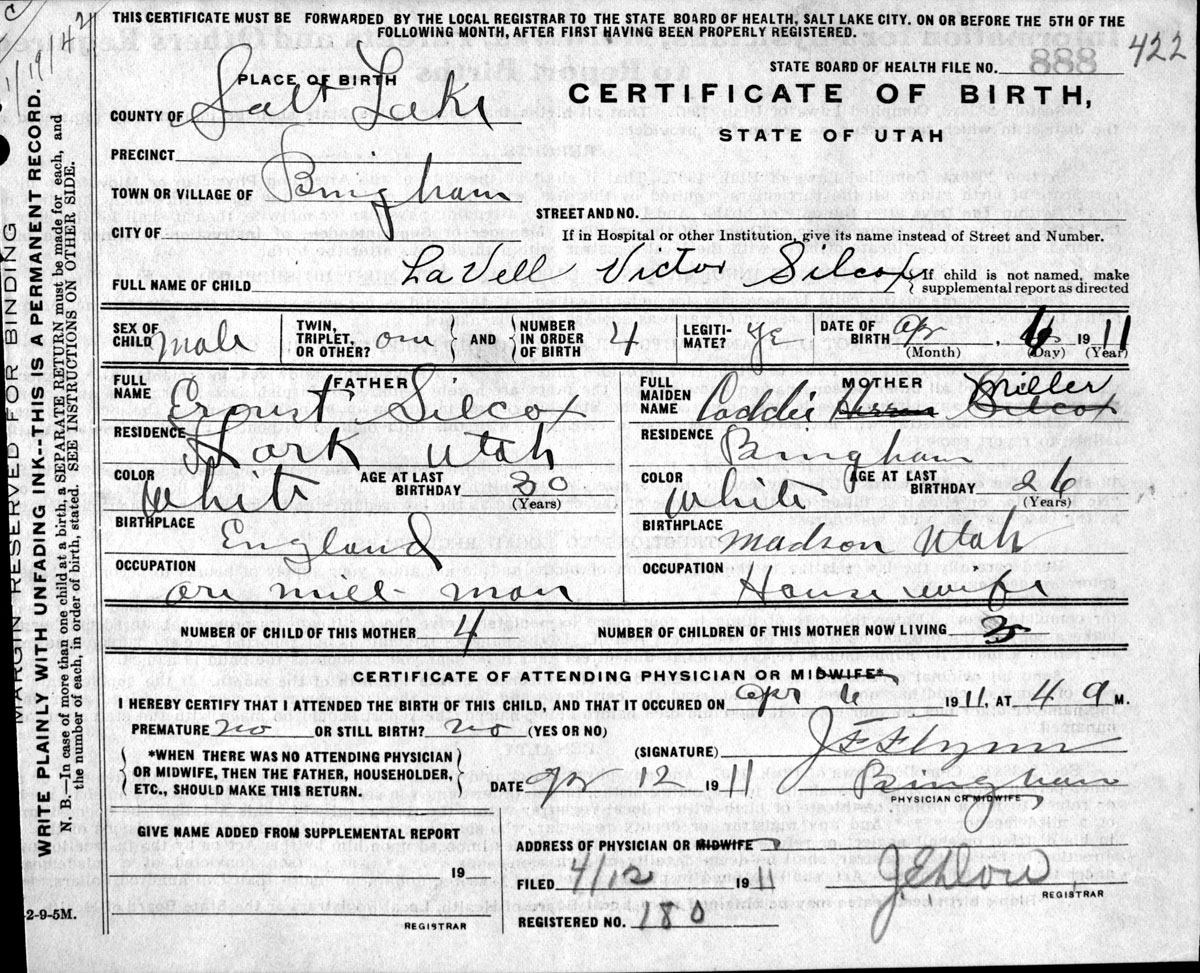 THIS CERTIFICATE MUST BE FORWARDED BY THE LOCAL REGISTRAR TO THE STATE BOARD OF HEALTH, SALT LAKE CITY. ON OR BEFORE THE 5TH OF THE
FOLLOWING MONTH, AFTER FIRST HAVING BEEN PROPERLY REGISTERED.
422
STATE BOARD OF HEALTH FILE NO. 888
PLACE OF BIRTH
CERTIFICATE OF BIRTH,
STATE OF UTAH
COUNTY OF Salt Lake
PRECINCT
TOWN OR VILLAGE OF Bingham
STREET AND NO.
CITY OF
If in Hospital or other Institution, give its name instead of Street and Number.
FULL NAME OF CHILD LaVell Victor Silcox If child is not named, make
supplemental report as directed
SEX OF CHILD male TWIN, TRIPLET, OR OTHER? one AND NUMBER IN ORDER OF BIRTH 4 LEGITI-MATE? ye DATE OF BIRTH Apr 6 1911
(Month) (Day) (Year)
FATHER
FULL NAME Ernust Silcox
RESIDENCE Lark Utah
COLOR White AGE AT LAST BIRTHDAY 30
(Years)
BIRTHPLACE England
OCCUPATION ore mill-man
MOTHER
FULL MAIDEN NAME Caddie Silcox Miller
RESIDENCE Bingham
COLOR White AGE AT LAST BIRTHDAY 26
(Years)
BIRTHPLACE Madson Utah
OCCUPATION House wife
NUMBER OF CHILD OF THIS MOTHER 4 NUMBER OF CHILDREN OF THIS MOTHER NOW LIVING 3
CERTIFICATE OF ATTENDING PHYSICIAN OR MIDWIFE*
I HEREBY CERTIFY THAT I ATTENDED THE BIRTH OF THIS CHILD, AND THAT IT OCCURED ON Apr 6 1911, AT 4 a M.
PREMATURE no OR STILL BIRTH? no (YES OR NO)
(SIGNATURE) J F Flynn
*WHEN THERE WAS NO ATTENDING PHYSICIAN
OR MIDWIFE, THEN THE FATHER, HOUSEHOLDER,
ETC., SHOULD MAKE THIS RETURN.
DATE apr 12 1911 Bingham
PHYSICIAN OR MIDWIFE,
GIVE NAME ADDED FROM SUPPLEMENTAL REPORT
19
REGISTRAR
ADDRESS OF PHYSICIAN OR MIDWIFE
FILED 4/12 1911
REGISTRAR
REGISTERED NO. 180
2-9-5M.
MARGIN RESERVED FOR BINDING
WRITE PLAINLY WITH UNFADING INK--THIS IS A PERMANENT RECORD.
N. B.—In case of more than one child at a birth, a SEPARATE RETURN must be made for each, and
the number of each, in order of birth, stated. SEE INSTRUCTIONS ON OTHER SIDE.